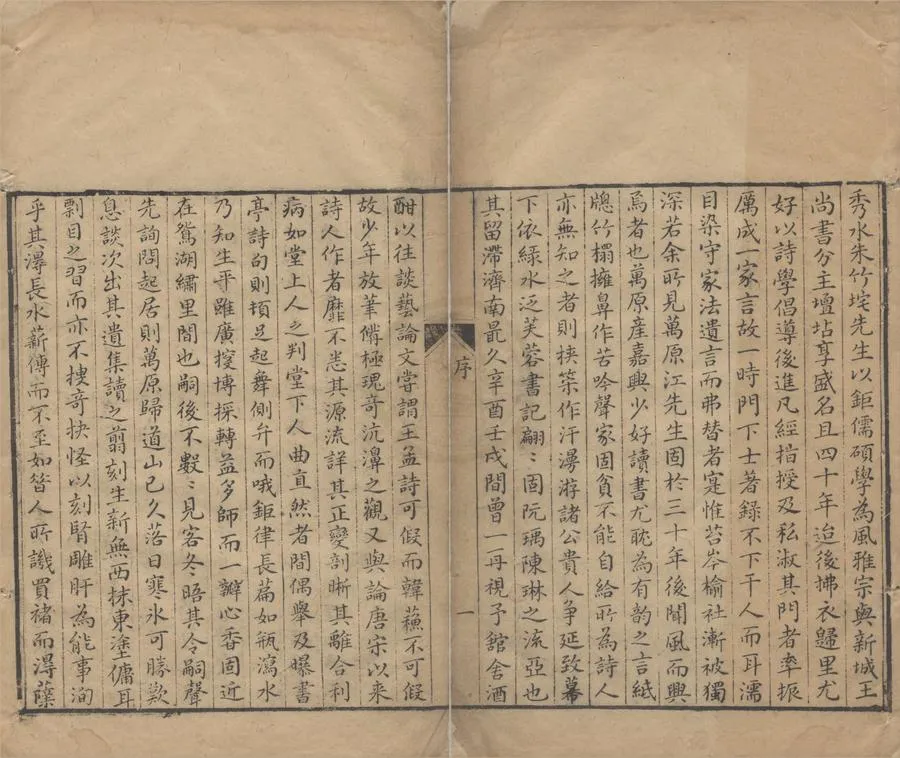 秀水朱竹垞先生以鉅儒碩學為風雅宗與新城王
尚書分主壇坫享盛名且四十年迨後拂衣歸里尤
好以詩學倡導後進凡經指授及私淑其門者率振
厲成一家言故一時門下士著錄不下千人而耳濡
目染守家法遺言而弗替者寔惟苔岑榆社漸被獨
深若余所見萬原江先生固於三十年後聞風而興
焉者也萬原產嘉興少好讀書尤耽為有韵之言紙
牕竹榻擁鼻作苦吟聲家固貧不能自給所為詩人
亦無知之者則挾筞作汗漫游諸公貴人争延致幕
下依綠水泛芙蓉書記翩〻固阮瑀陳琳之流亞也
其留滯濟南最久辛酉壬戌間曾一再視予舘舍酒
序
一
酣以往談藝論文嘗謂王孟詩可假而韓蘇不可假
故少年放筆俻極瑰奇沆瀁之觀又與論唐宋以来
詩人作者靡不悉其源流詳其正變剖晰其離合利
病如堂上人之判堂下人曲直然者間偶舉及曝書
亭詩句則頓足起舞側弁而哦鉅律長萹如瓶瀉水
乃知生平雖廣搜博採轉益多師而一瓣心香固近
在鴛湖繡里間也嗣後不數〻見客冬晤其令嗣聲
先詢問起居則萬原歸道山已久落日寒氷可勝歎
息談次出其遺集讀之翦刻生新無西抹東塗傭耳
剽目之習而亦不捜竒抉怪以刻腎雕肝為能事洵
乎其淂長水薪傳而不至如昝人所譏買褚而淂薩